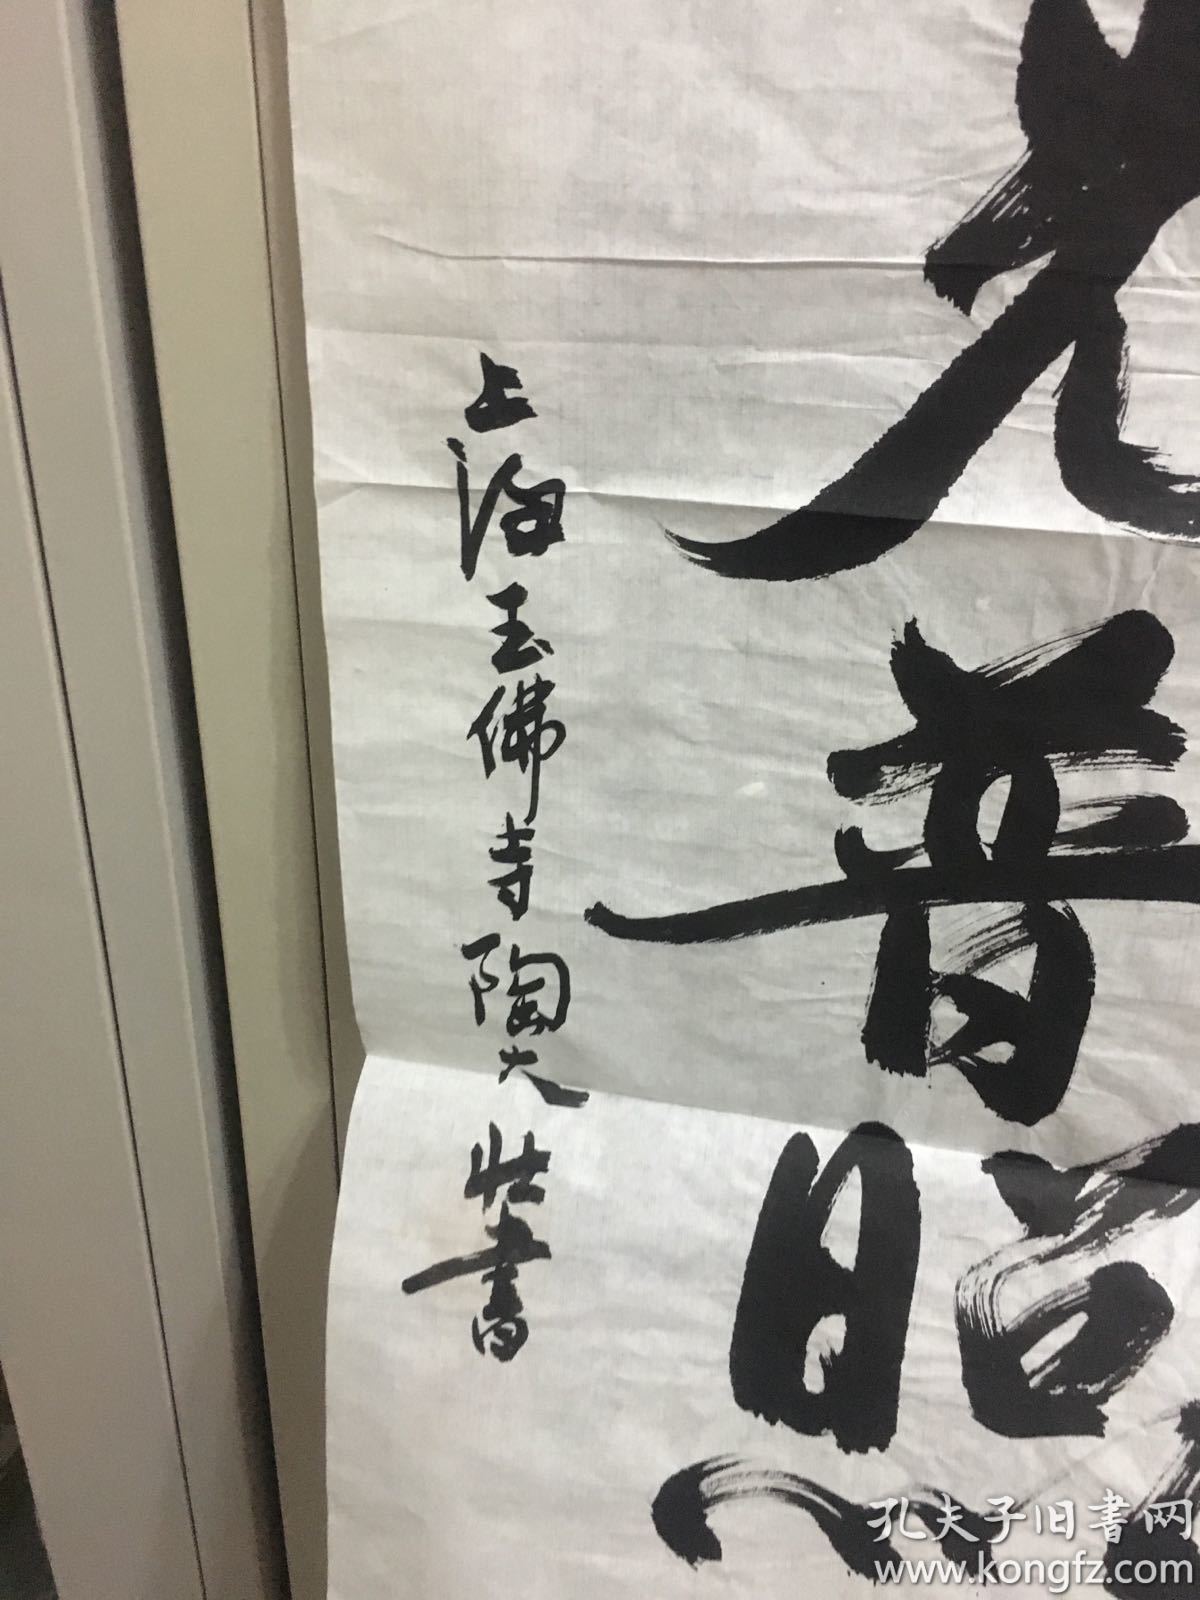 光普照
上海玉佛寺陶大壮書
孔夫子旧書网
www.kongfz.com